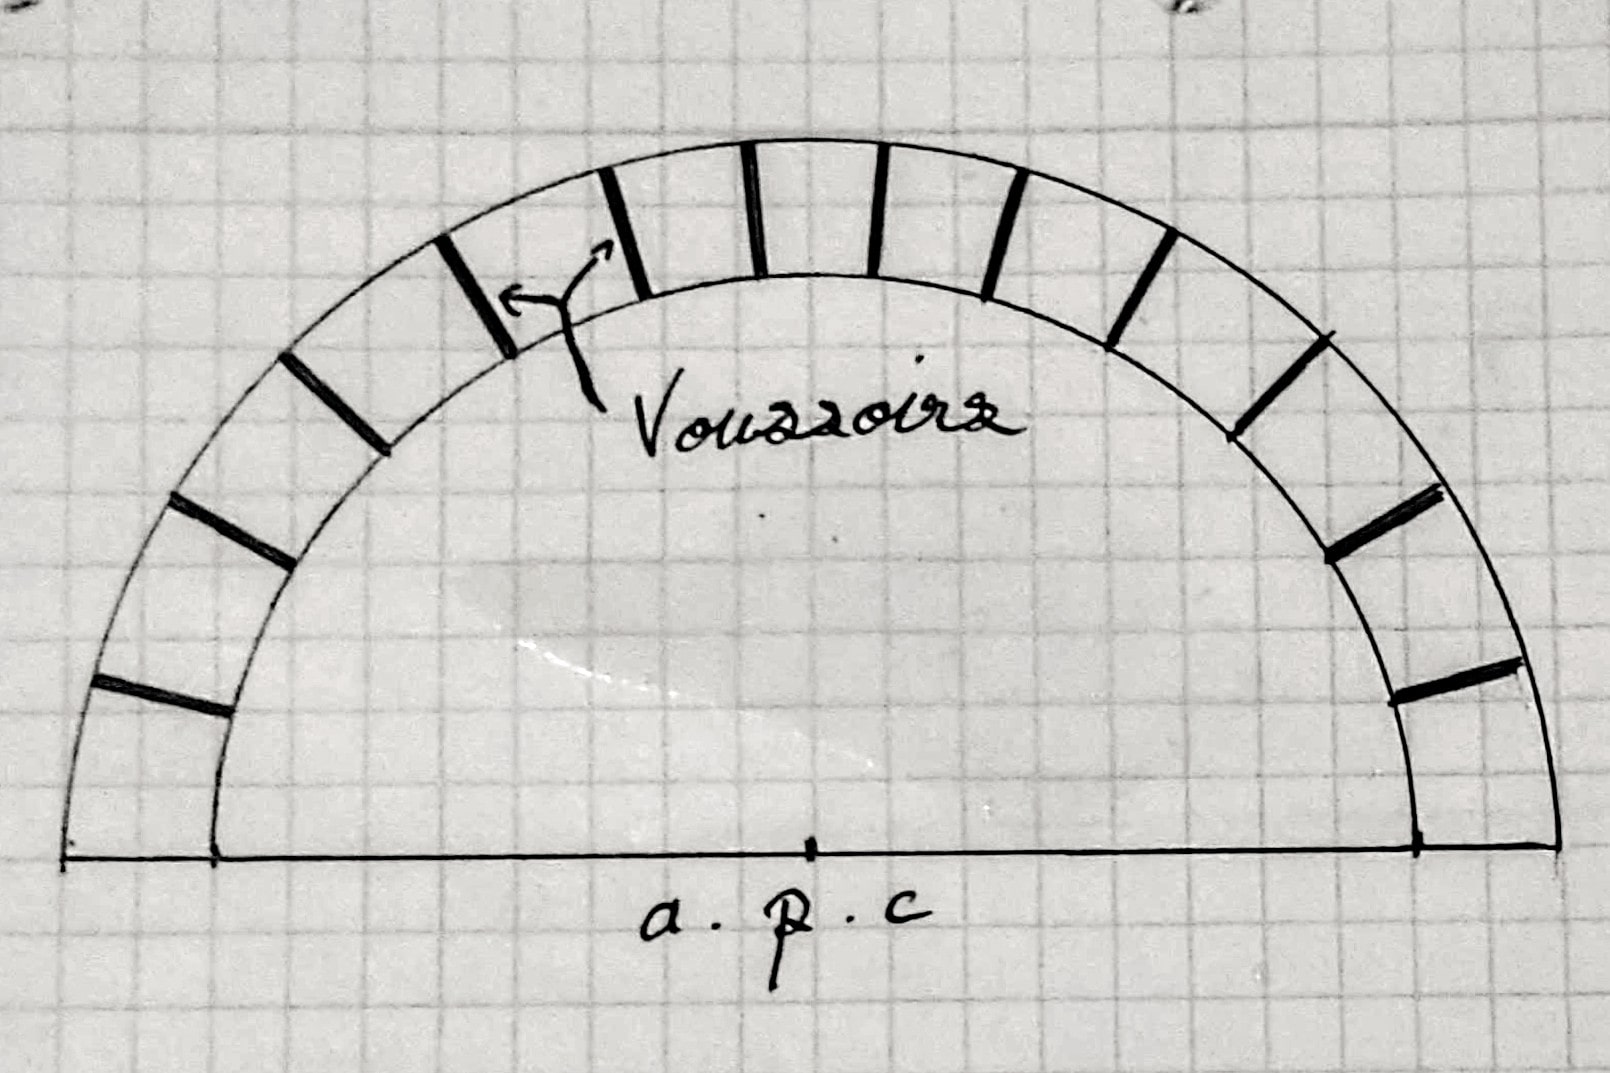 Voussoirs
a. p. c